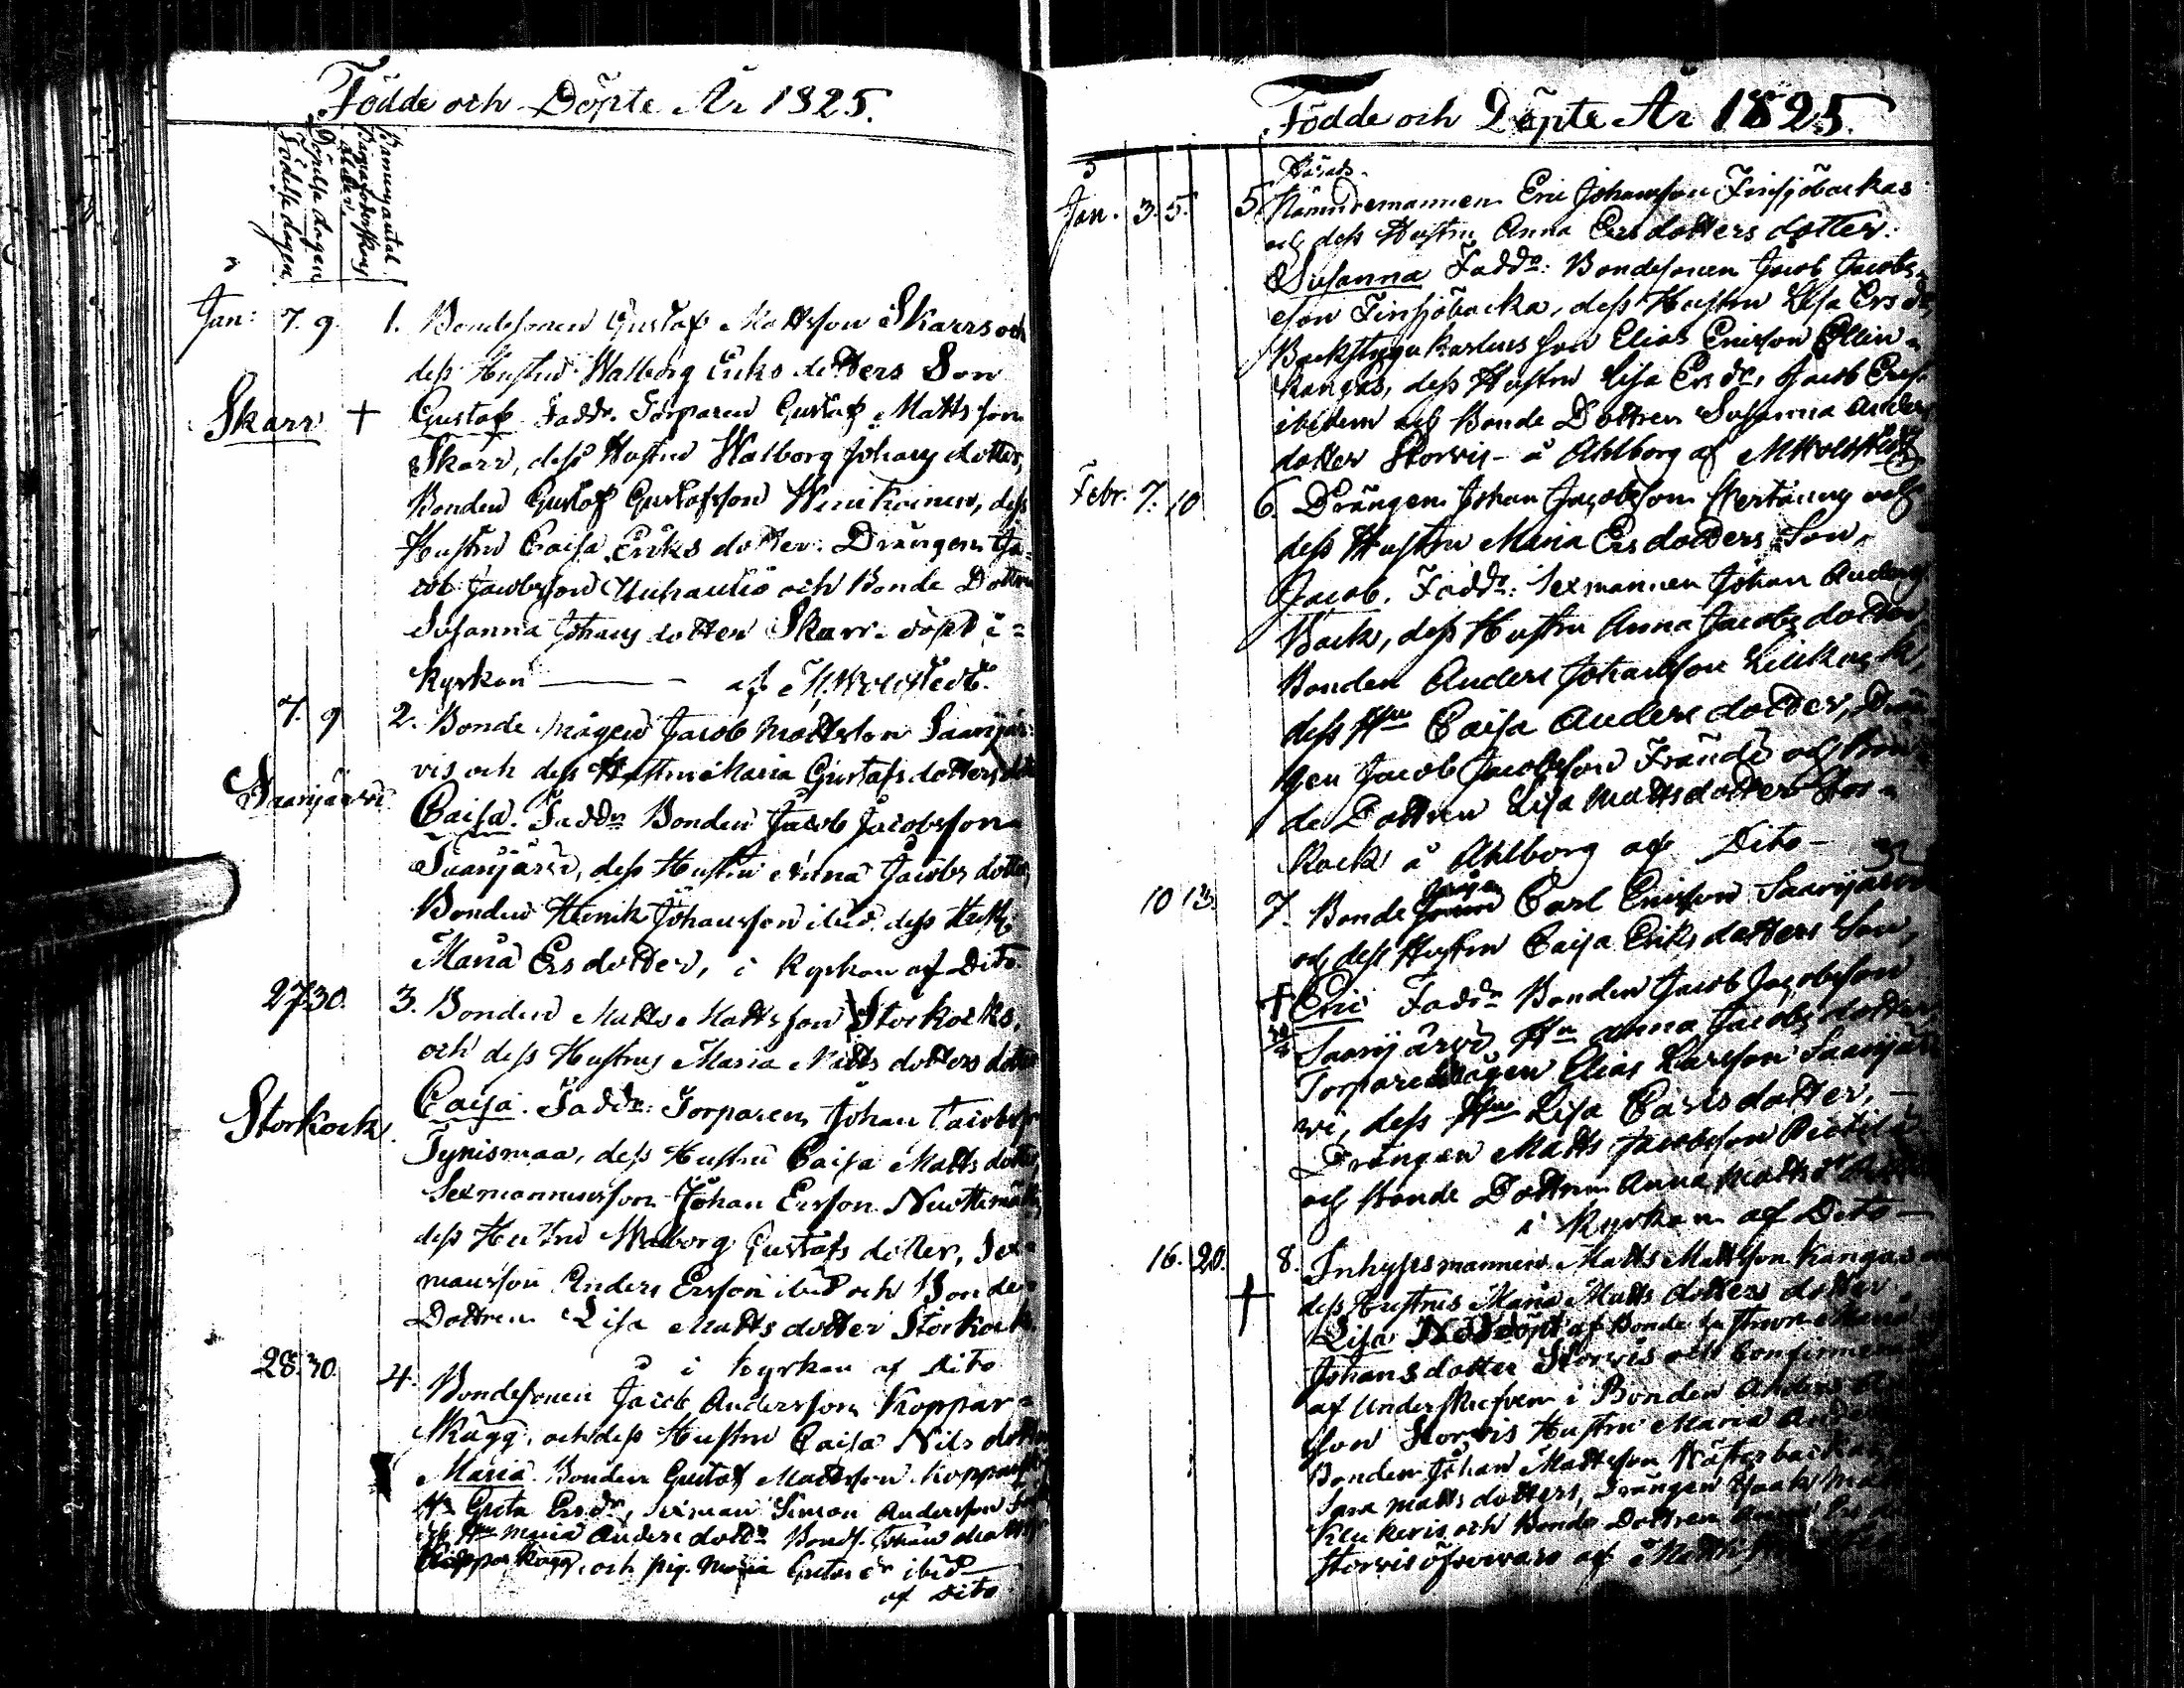 Födde och Döpte År 1825.
Födelse dagen
Döpelse dagen
Barnens antal
Jan: 7. 9. 1. Bondesonen Gustaf Mattsson Skarrs och
dess Hustru Walborg Eriks dotters Son
Skarr + Gustaf Fadd. Torparen Gustaf Mattsson
Skarr, dess Hustru Walborg Johans dotter,
Bonden Gustaf Gustafsson, dess
Hustru Caisa Eriks dotter. Drängen Ja-
cob Jacobsson och Bonde Dottren
Susanna Johans dotter Skarr. döpt i
Kyrkan — af
7. 9 2. Bonde mågen Jacob Mattsson Saarijär-
vis och dess Hustru Maria Gustafs dotters
Saarijärvi Caisa. Faddr Bonden Jacob Jacobsson
Saarijärvi, dess Hustru Anna Jacobs dotter
Bonden Henrik Johansson ibid. dess Hustr
Maria Ersdotter, i Kyrkan af Dito
27 30. 3. Bonden Matts Mattsson Storkocks,
och dess Hustrus Maria Matts dotters dotter
Storkock Caisa. Faddr: Torparen Johan Jacobss
Tynismaa, dess Hustru Caisa Matts dotter,
Sexmannensson Johan Ersson
dess Hustru Walborg Gustafs dotter, Sex-
mansson Anders Ersson ibid och Bonde
Dottren Lisa Matts dotter Storkock
i Kyrkan af Dito
28. 30. 4. Bondesonen Jacob Andersson Koppar-
skägg, och dess Hustru Caisa Nils dotter
Maria. Bonden Gustaf Mattsson Kopparskägg
Hu Greta Ersdr, Sexman Simon Andersson
Hu Maria Anders dottr Bonds. Johan Mattss
Kopparskägg, och pig. Maria ibid
af Dito
Födde och Döpte År 1825.
Jan. 3. 5. 5. Härads-
Nämndemannen Eric Johansson Finsjöbackas
och dess Hustru Anna Ersdotters dotter.
Susanna Faddr: Bondesonen Jacob Jacobs-
son Finsjöbacka, dess Hustru Lisa Ersdr,
Backstugukarlens son Elias Ericsson
kangas, dess Hustru Lisa Ersdr, Jacob
ibidem och Bonde Dottren Susanna Anders
dotter Storvis - å Ahlborg af
Febr. 7. 10 6. Drängen Johan Jacobsson och
dess Hustru Maria Ersdotters Son,
Jacob. Faddr: Sexmannen Johan Anders
Back, dess Hustru Anna Jacobs dotter
Bonden Anders Johansson
dess Hu Caisa Anders dotter, Drän-
gen Jacob Jacobsson Frände och Bon-
de Dottren Lisa Matts dotter Stor-
kock å Ahlborg af Dito -
10 13. 7. Bonde mågen Carl Ericsson Saarijärvi
och dess Hustru Caisa Eriks dotters Son,
+ Eric Faddr Bonden Jacob Jacobsson
Saarijärvi Hu Anna Jacobs dotter,
Torparemågen Elias Larsson Saarijär
vi, dess Hu Lisa Carls dotter, —
Drängen Matts Jacobsson
och Bonde Dottren Anna Matts dr
i Kyrkan af Dito —
16. 20. 8. Inhysesmannen Matts Mattsson Kangas
+ dess Hustrus Maria Matts dotters dotter
Lisa Nöddöpt af Bonde hustrun Maria
Johansdotter Storvis och Confirmerat
af Underskrefven i Bonden Anders
son Storvis Hustru Maria Anders
Bonden Johan Mattsson Västerbacka
Sara Matts dotters, Drängen Isaak
och Bonde Dottren
Storvis öfvervaro af